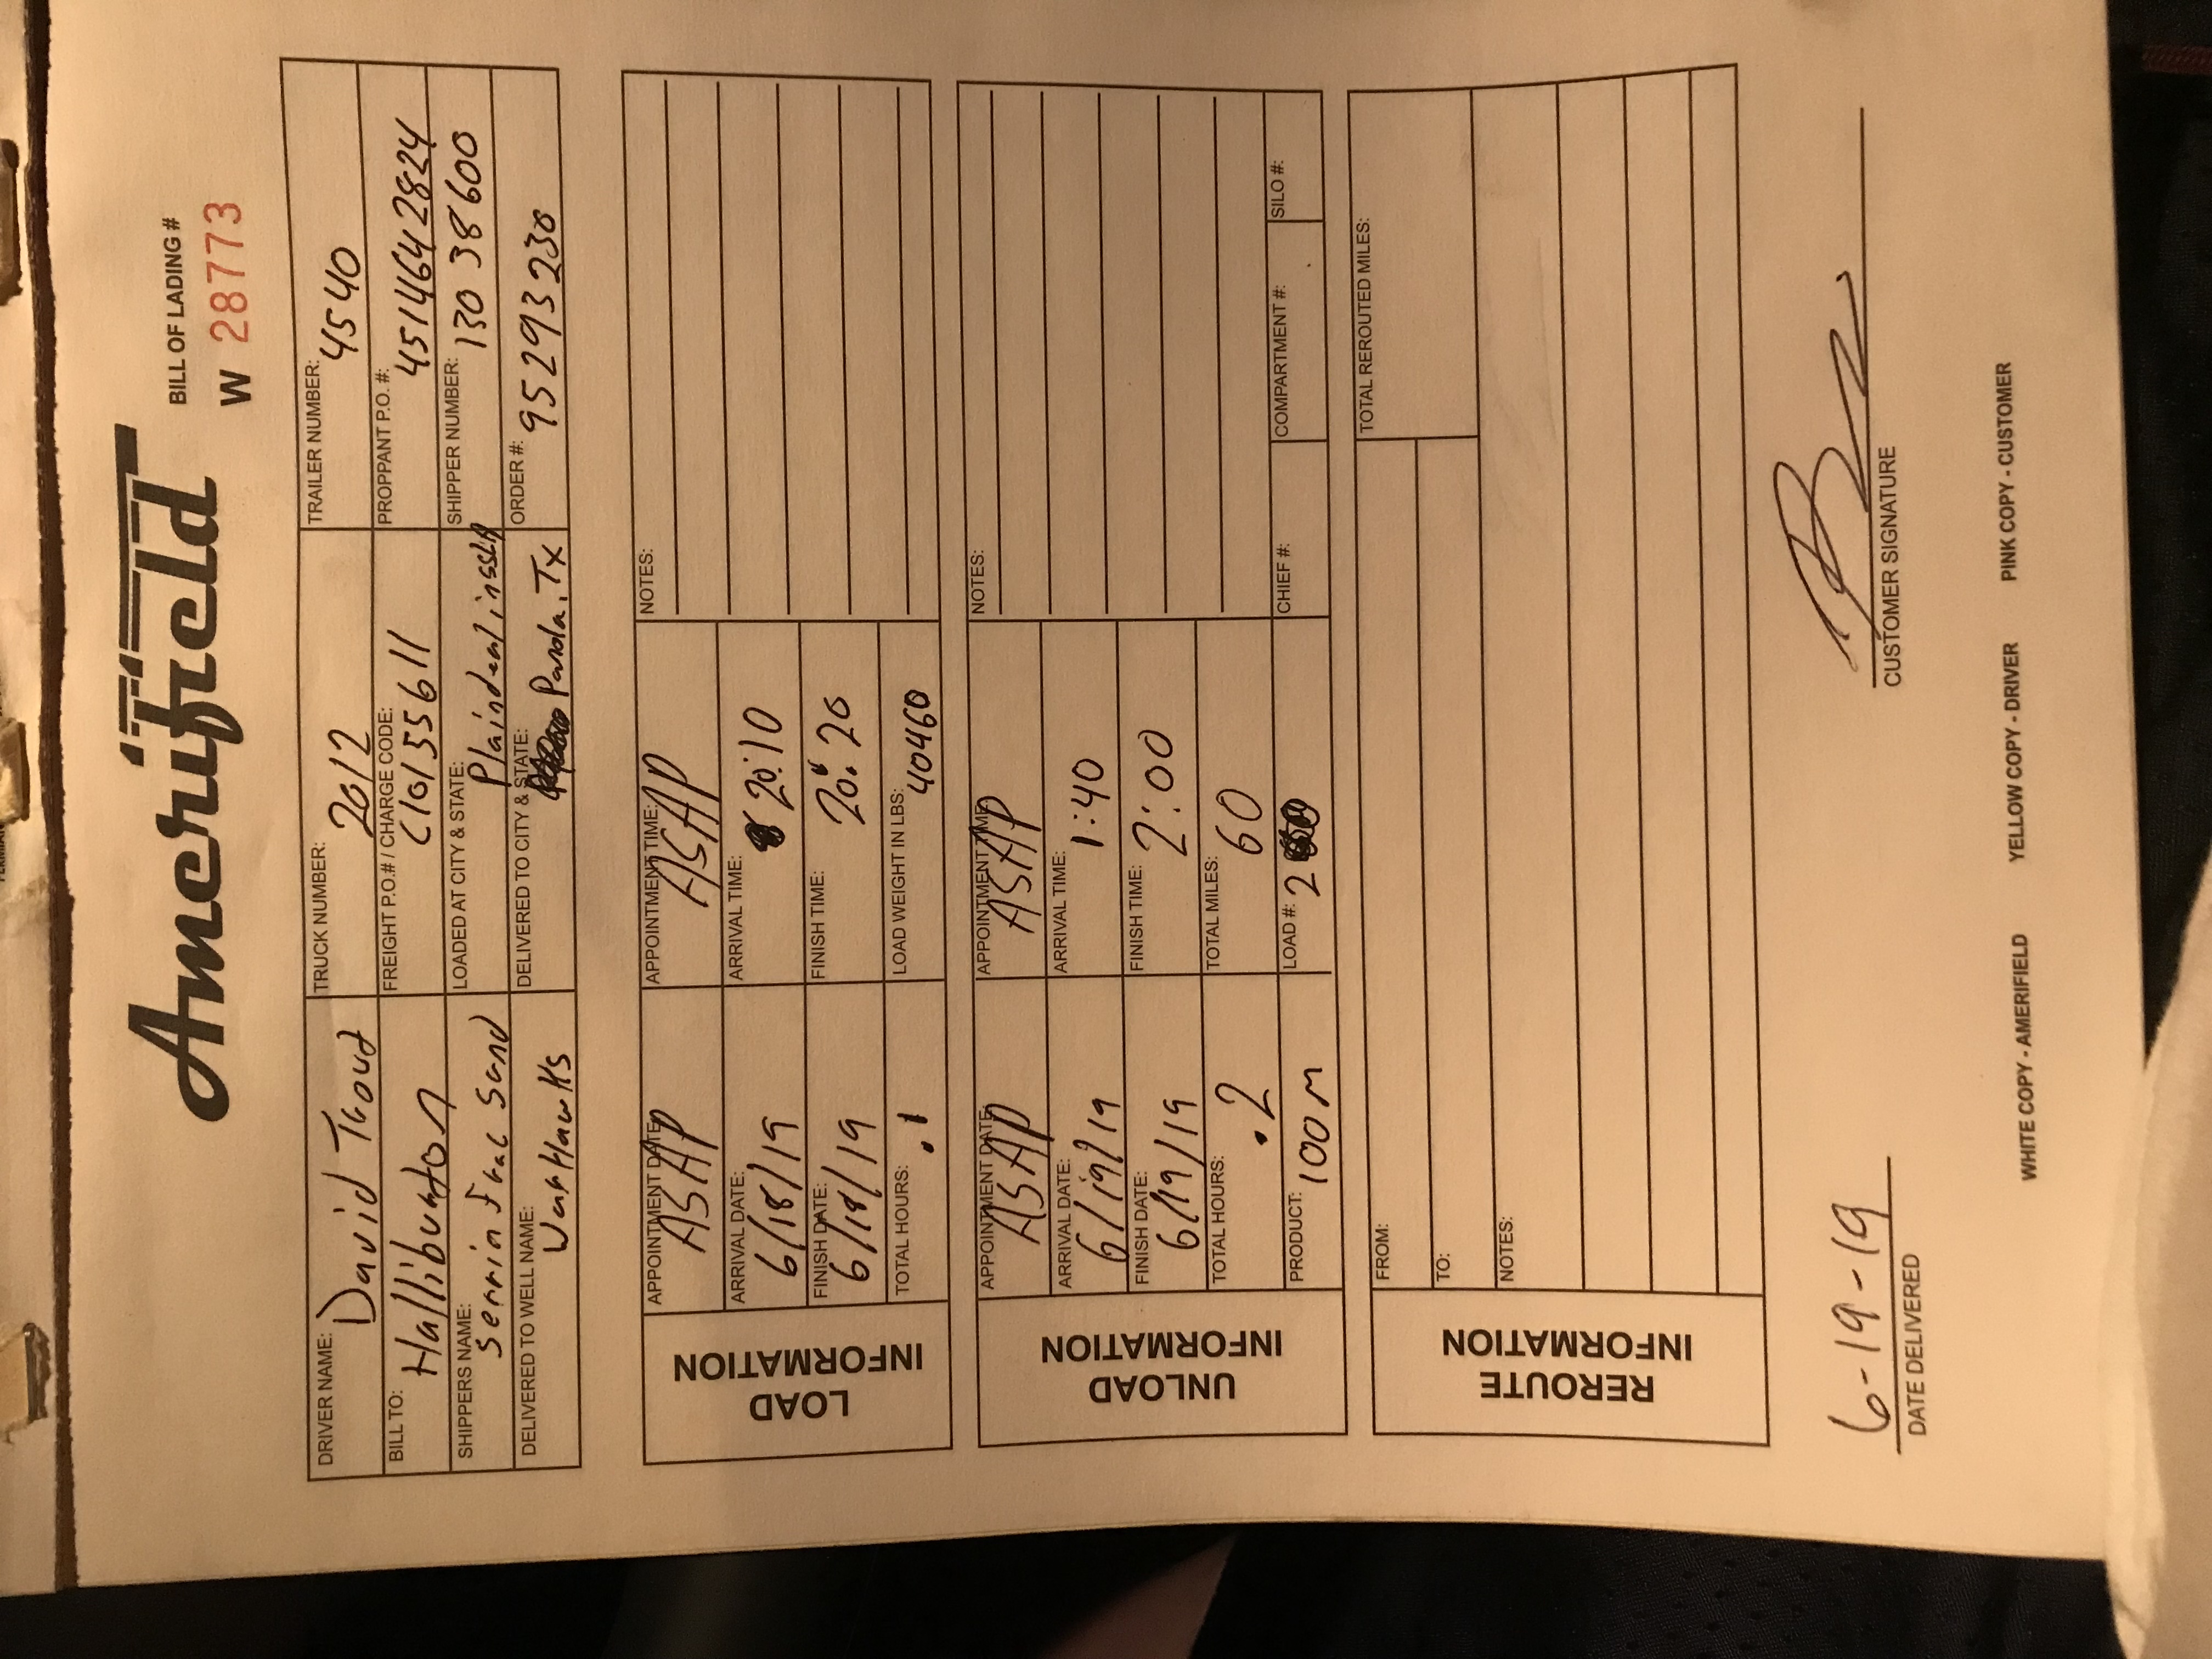 Amerifield
BILL OF LADING #
W 28773
DRIVER NAME: David Trout
TRUCK NUMBER: 2012
TRAILER NUMBER: 4540
BILL TO: Halliburton
FREIGHT P.O.# / CHARGE CODE: C10155611
PROPPANT P.O. #: 4514642824
SHIPPERS NAME: Serrin Frac Sand
LOADED AT CITY & STATE: Plaindeal
SHIPPER NUMBER: 130 38600
DELIVERED TO WELL NAME: WarHawks
DELIVERED TO CITY & STATE: Panola, Tx
ORDER #: 95293230
LOAD INFORMATION
APPOINTMENT DATE: ASAP
APPOINTMENT TIME: ASAP
NOTES:
ARRIVAL DATE: 6/18/19
ARRIVAL TIME: 20:10
FINISH DATE: 6/18/19
FINISH TIME: 20:20
TOTAL HOURS: .1
LOAD WEIGHT IN LBS: 40460
UNLOAD INFORMATION
APPOINTMENT DATE: ASAP
APPOINTMENT TIME: ASAP
NOTES:
ARRIVAL DATE: 6/19/19
ARRIVAL TIME: 1:40
FINISH DATE: 6/19/19
FINISH TIME: 2:00
TOTAL HOURS: .2
TOTAL MILES: 60
PRODUCT: 100 M
LOAD #: 2
CHIEF #:
COMPARTMENT #:
SILO #:
REROUTE INFORMATION
FROM:
TOTAL REROUTED MILES:
TO:
NOTES:
6-19-19
DATE DELIVERED
CUSTOMER SIGNATURE
WHITE COPY - AMERIFIELD YELLOW COPY - DRIVER PINK COPY - CUSTOMER